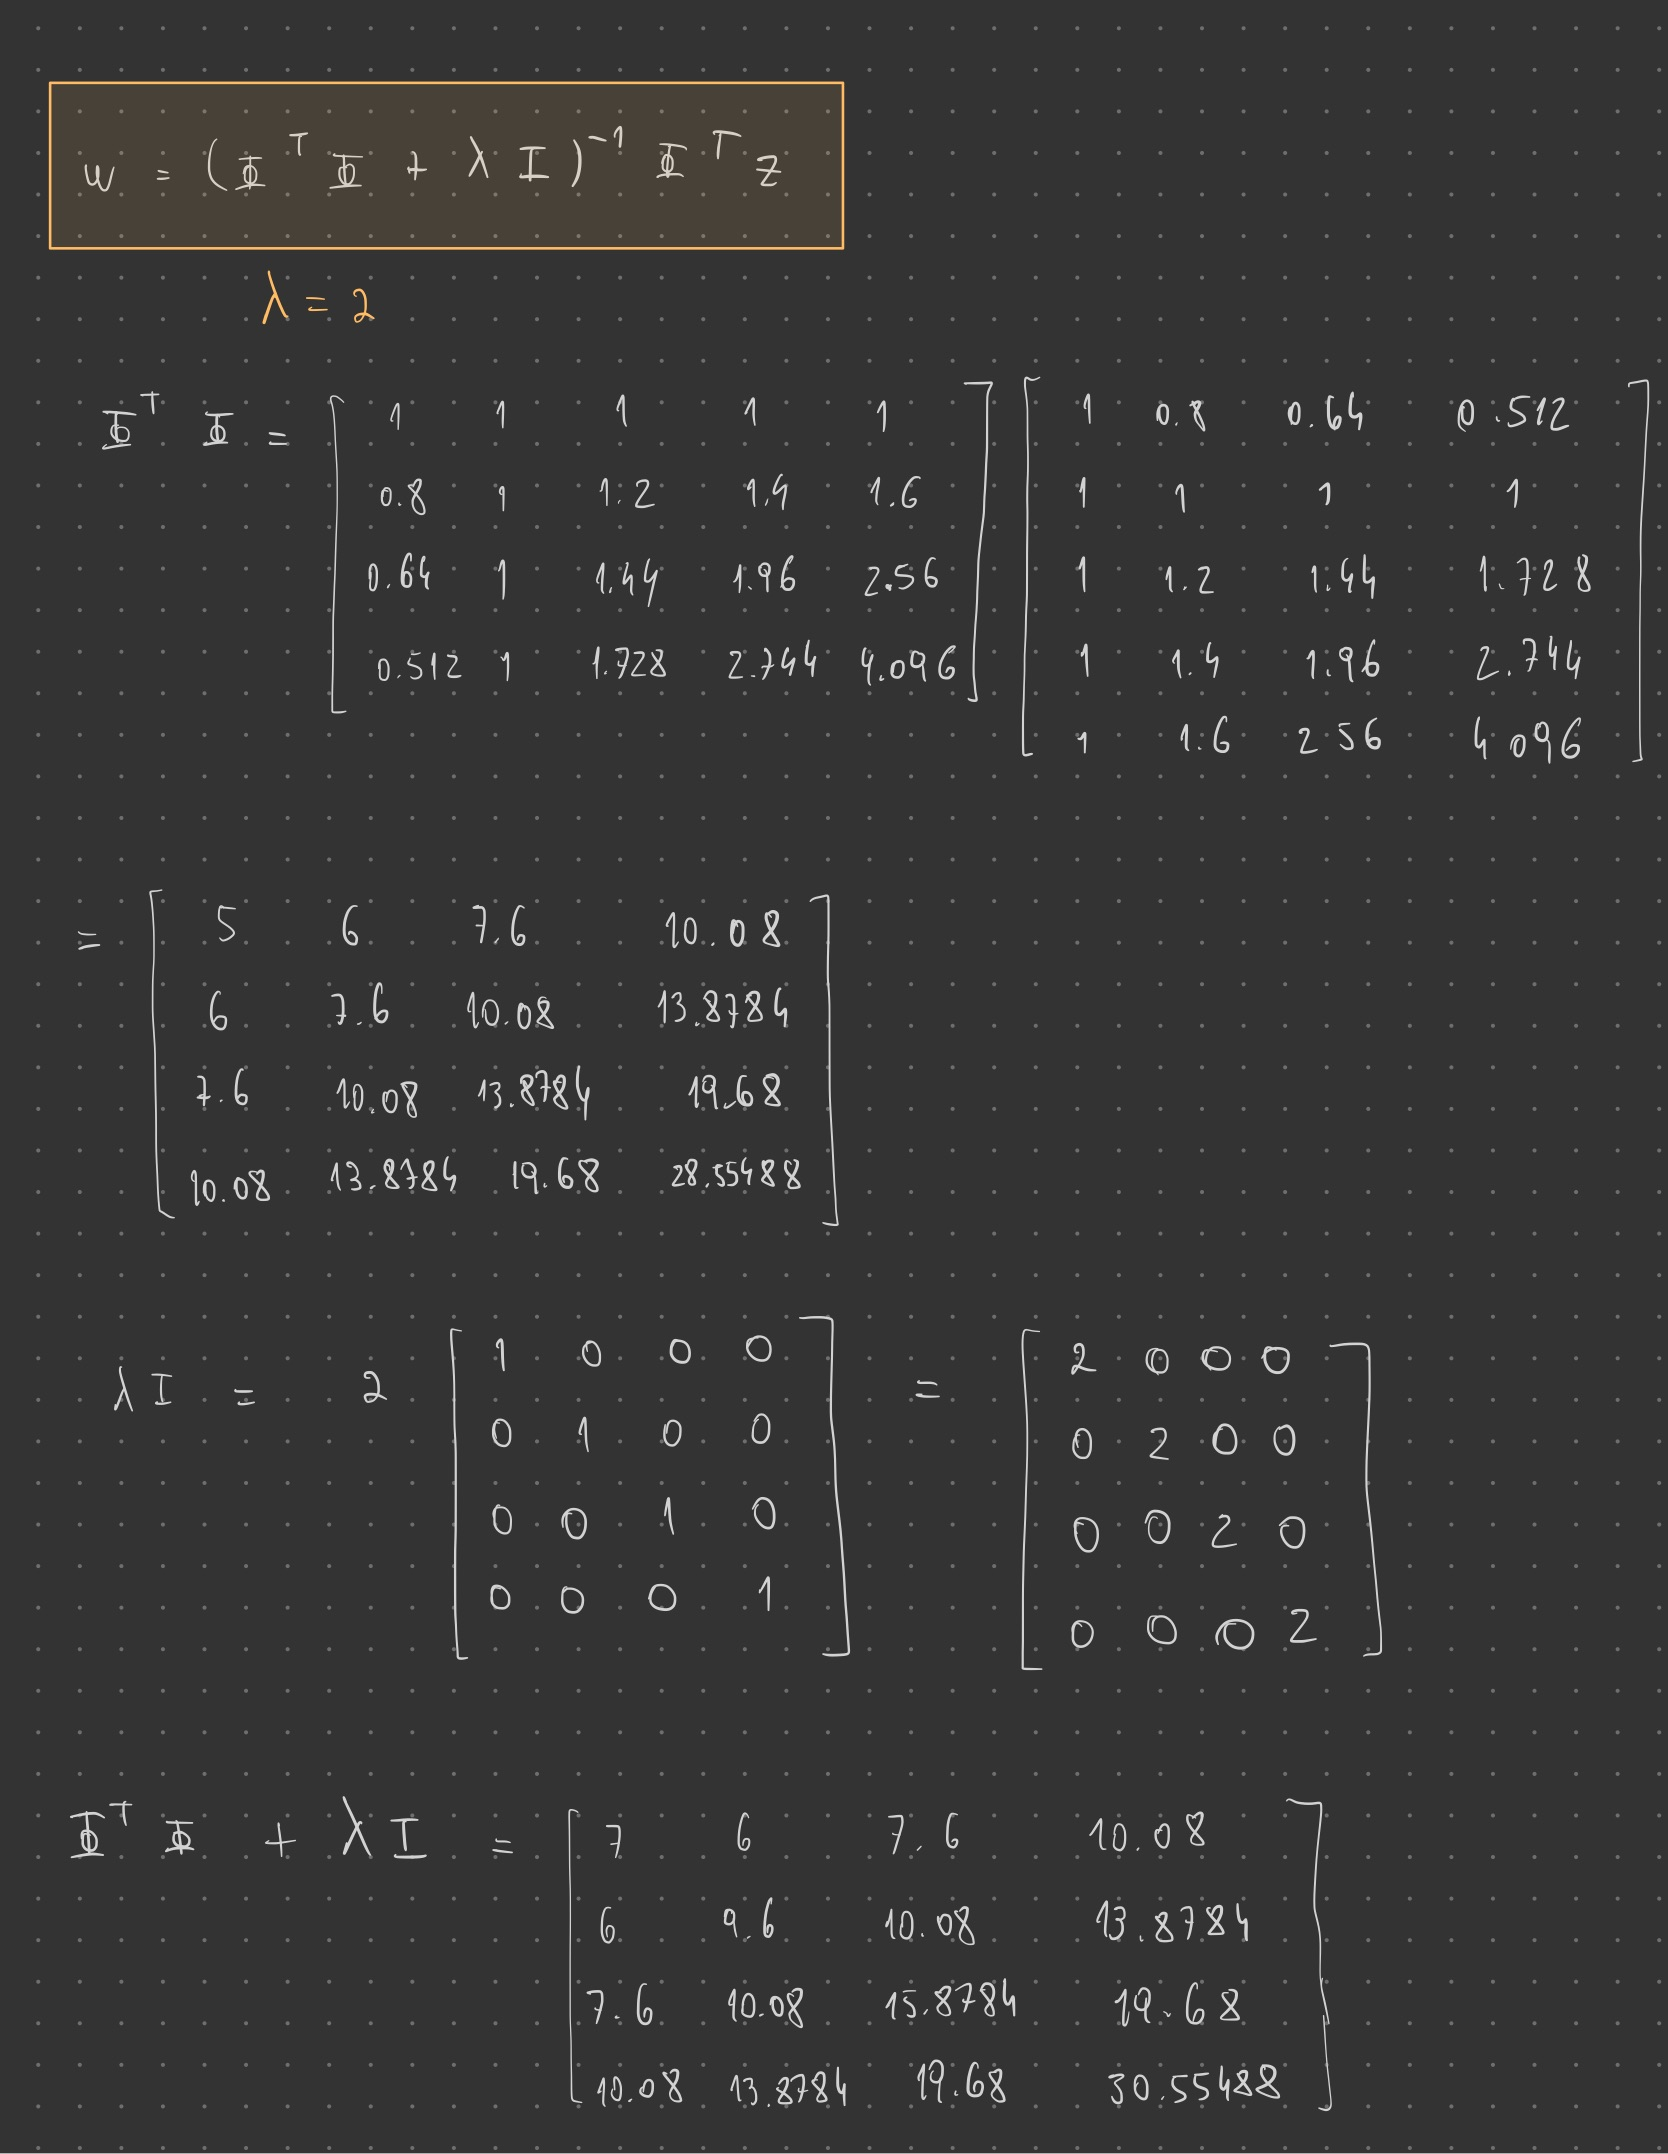 w = (Φᵀ Φ + λ I)⁻¹ Φᵀ z
λ = 2
Φᵀ Φ = [ 1 1 1 1 1 ] [ 1 0.8 0.64 0.512 ]
0.8 1 1.2 1.4 1.6 1 1 1 1
0.64 1 1.44 1.96 2.56 1 1.2 1.44 1.728
0.512 1 1.728 2.744 4.096 1 1.4 1.96 2.744
1 1.6 2 56 4 096
= [ 5 6 7.6 10.08 ]
6 7.6 10.08 13.8784
7.6 10.08 13.8784 19.68
10.08 13.8784 19.68 28.55488
λ I = 2 [ 1 0 0 0 ] = [ 2 0 0 0 ]
0 1 0 0 0 2 0 0
0 0 1 0 0 0 2 0
0 0 0 1 0 0 0 2
Φᵀ Φ + λ I = [ 7 6 7.6 10.08 ]
6 9.6 10.08 13.8784
7.6 10.08 15.8784 19.68
10.08 13.8784 19.68 30.55488